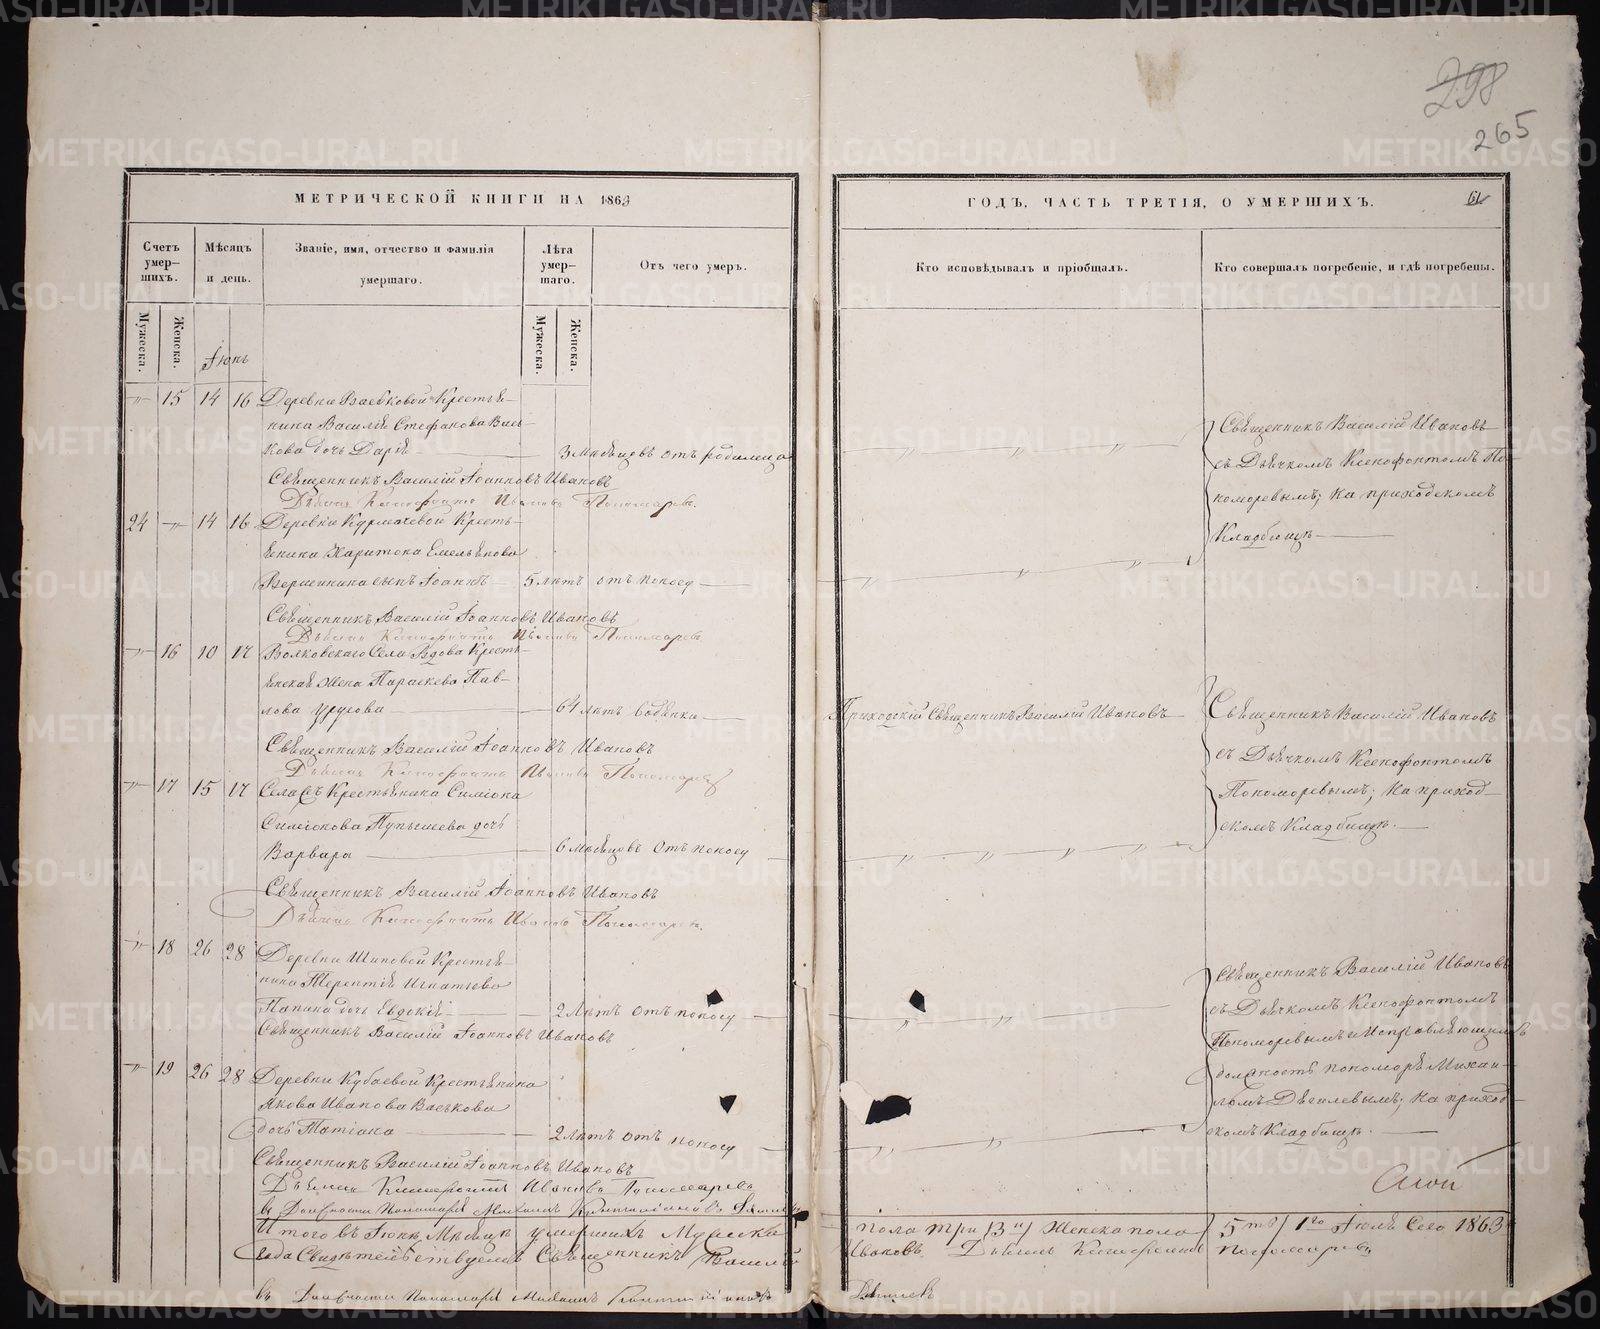 298
265
МЕТРИЧЕСКОЙ КНИГИ НА 1863
ГОДЪ, ЧАСТЬ ТРЕТІЯ, О УМЕРШИХЪ.
Счетъ умер-
шихъ.
Мѣсяцъ
и день.
Званіе, имя, отчество и фамилія
умершаго.
Лѣта
умер-
шаго.
Отъ чего умеръ.
Кто исповѣдывалъ и пріобщалъ.
Кто совершалъ погребеніе, и гдѣ погребены.
Мужеска.
Женска.
Іюнь
Мужеска.
Женска.
15 14 16 Деревни Крестья-
нина Василія Стефанова Вась-
кова дочь Дарія 3 мѣсяцовъ отъ родимца
Священникъ Василій Іоанновъ Ивановъ
Дьячекъ Ксенофонтъ Ивановъ Пономаревъ.
Священникъ Василій Ивановъ
съ Дьячкомъ Ксенофонтомъ По-
номаревымъ; на приходскомъ
Кладбищѣ
24 14 16 Деревни Курмачевой Кресть-
янина Харитона Емельянова
Вершинина сынъ Іоаннъ 5 лѣтъ отъ поносу
Священникъ Василій Іоанновъ Ивановъ
Дьячекъ Ксенофонтъ Ивановъ Пономаревъ
16 10 17 Волковскаго Села Вдова Кресть-
янская жена Параскева Пав-
лова Урусова 64 лѣтъ водянка
Приходскій Священникъ Василій Ивановъ
Священникъ Василій Іоанновъ Ивановъ
Дьячекъ Ксенофонтъ Ивановъ Пономаревъ
Священникъ Василій Ивановъ
съ Дьячкомъ Ксенофонтомъ
Пономаревымъ; на приход-
скомъ Кладбищѣ.
17 15 17 Села Съ Крестьянина Симіона
Симіонова Пупышева дочь
Варвара 6 мѣсяцовъ отъ поносу
Священникъ Василій Іоанновъ Ивановъ
Дьячекъ Ксенофонтъ Ивановъ Пономаревъ.
18 26 28 Деревни Шиповой Крестья-
нина Терентія Игнатьева
Папина дочь Евдокія 2 лѣтъ отъ поносу
Священникъ Василій Іоанновъ Ивановъ
Священникъ Василій Ивановъ
съ Дьячкомъ Ксенофонтомъ
Пономаревымъ и Исправляющимъ
должность пономаря Михаи-
ломъ; на приход-
скомъ Кладбищѣ.
19 26 28 Деревни Кубаевой Крестьянина
Якова Иванова Васькова
дочь Татіана 2 лѣтъ отъ поносу
Священникъ Василій Іоанновъ Ивановъ
Дьячекъ Ксенофонтъ Ивановъ Пономаревъ
въ Должности Пономаря Михаилъ
Итого въ Іюнѣ Мѣсяцѣ умершихъ Мужска пола три /3 и/ Женска пола 5ть/ 1го Іюля Сего 1863
года Свидѣтельствуемъ Священникъ Василій Ивановъ Дьячекъ Ксенофонтъ Пономаревъ
въ Должности Пономаря Михаилъ
METRIKI.GASO-URAL.RU